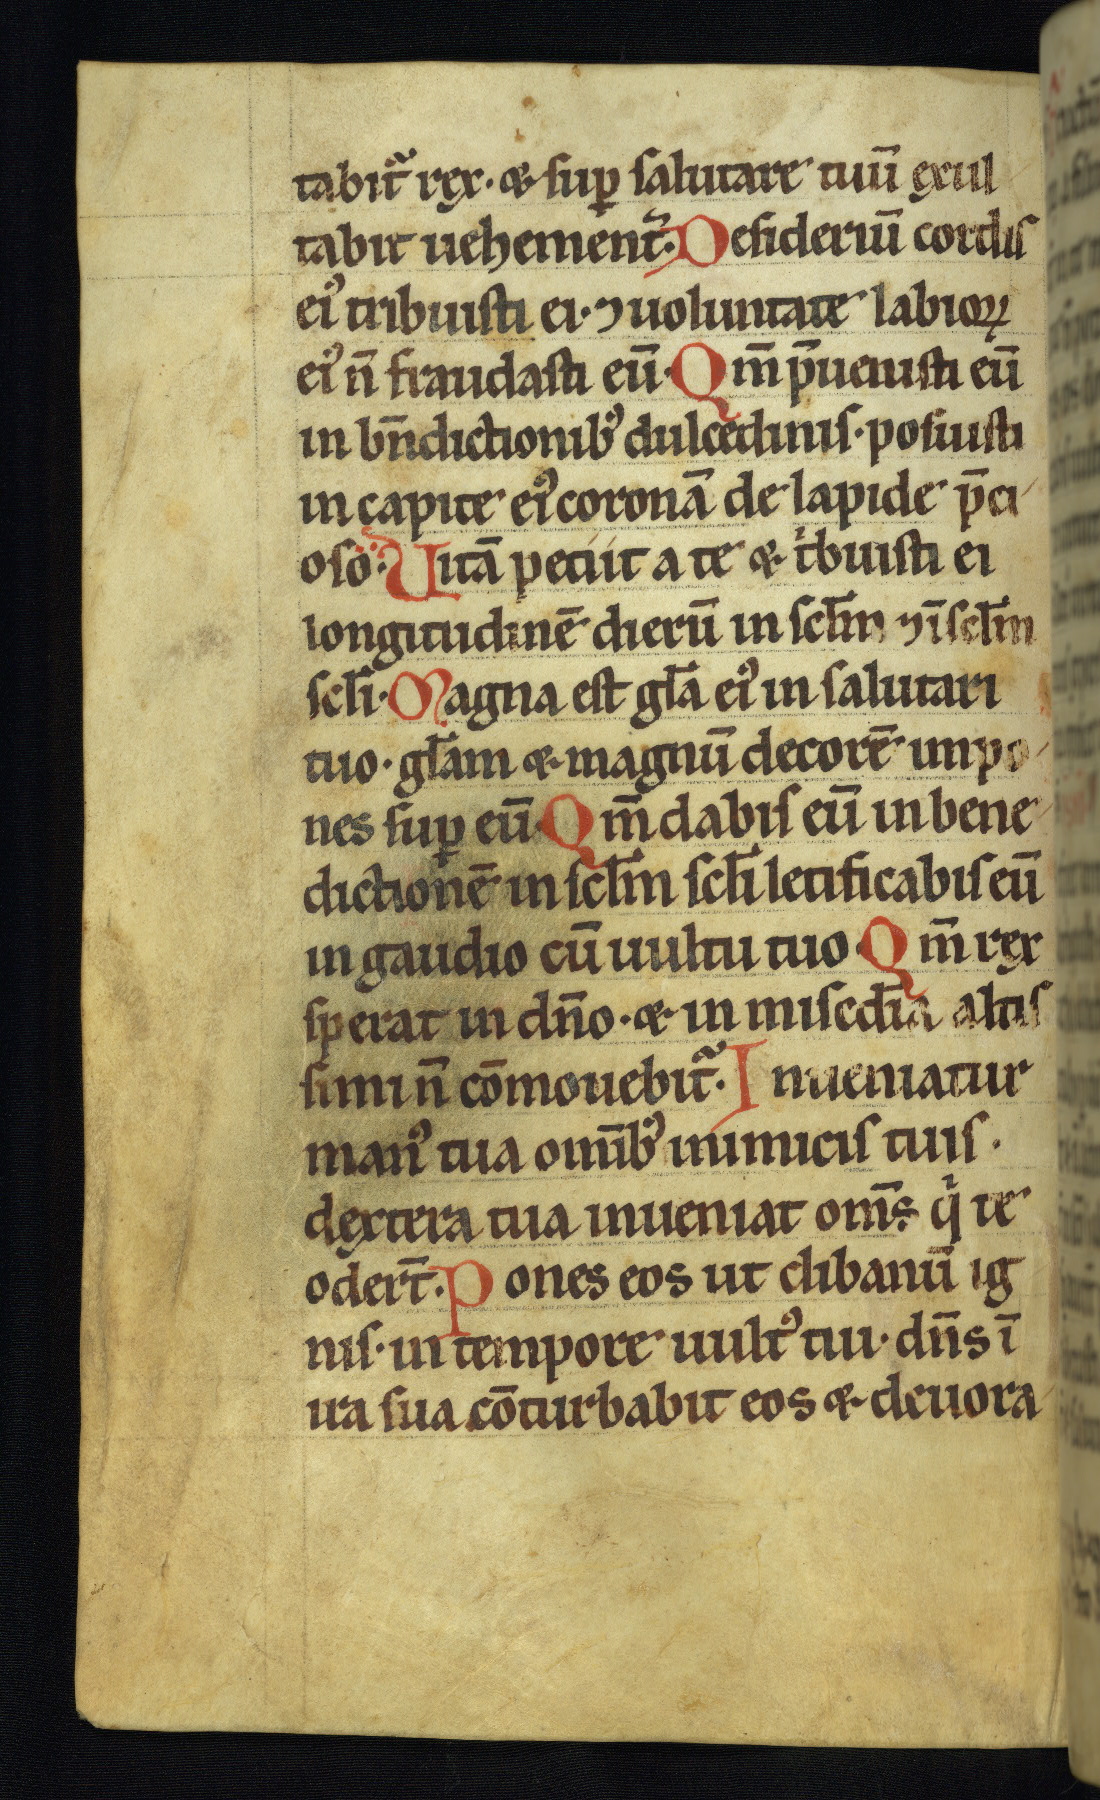 tabit᷑ rex · & sup̱ salutare tuū exul
tabit uehement᷑ · Desideriū cordis
ei⁹ tribuisti ei · ⁊ uoluntate labioꝝ
ei⁹ n̄ fraudasti eū · Qm̄ p̄uenisti eū
in bn̄dictionib⁹ dulcedinis · posuisti
in capite ei⁹ coronā de lapide p̄ci
oso · Uitā petiit a te & tⁱbuisti ei
longitudinē dierū in sclm̄ ⁊ ī sclm̄
scli̅ · Magna est gl̅a ei⁹ in salutari
tuo · gl̅am & magnū decorē impo
nes sup̱ eū · Qm̄ dabis eū in bene
dictionē in scl̅m scl̅i letificabis eū
in gaudio cū uultu tuo · Qm̄ rex
sperat in dn̄o · & in misc̅dia altis
simi n̄ cōmouebit᷑ · Inueniatur
man⁹ tua omīb⁹ inimicis tuis ·
dextera tua inueniat om̄s qⁱ te
odert̄ · Pones eos ut clibanū ig
nis · in tempore uult⁹ tui · dn̄s ī
ira sua cōturbabit eos & deuora